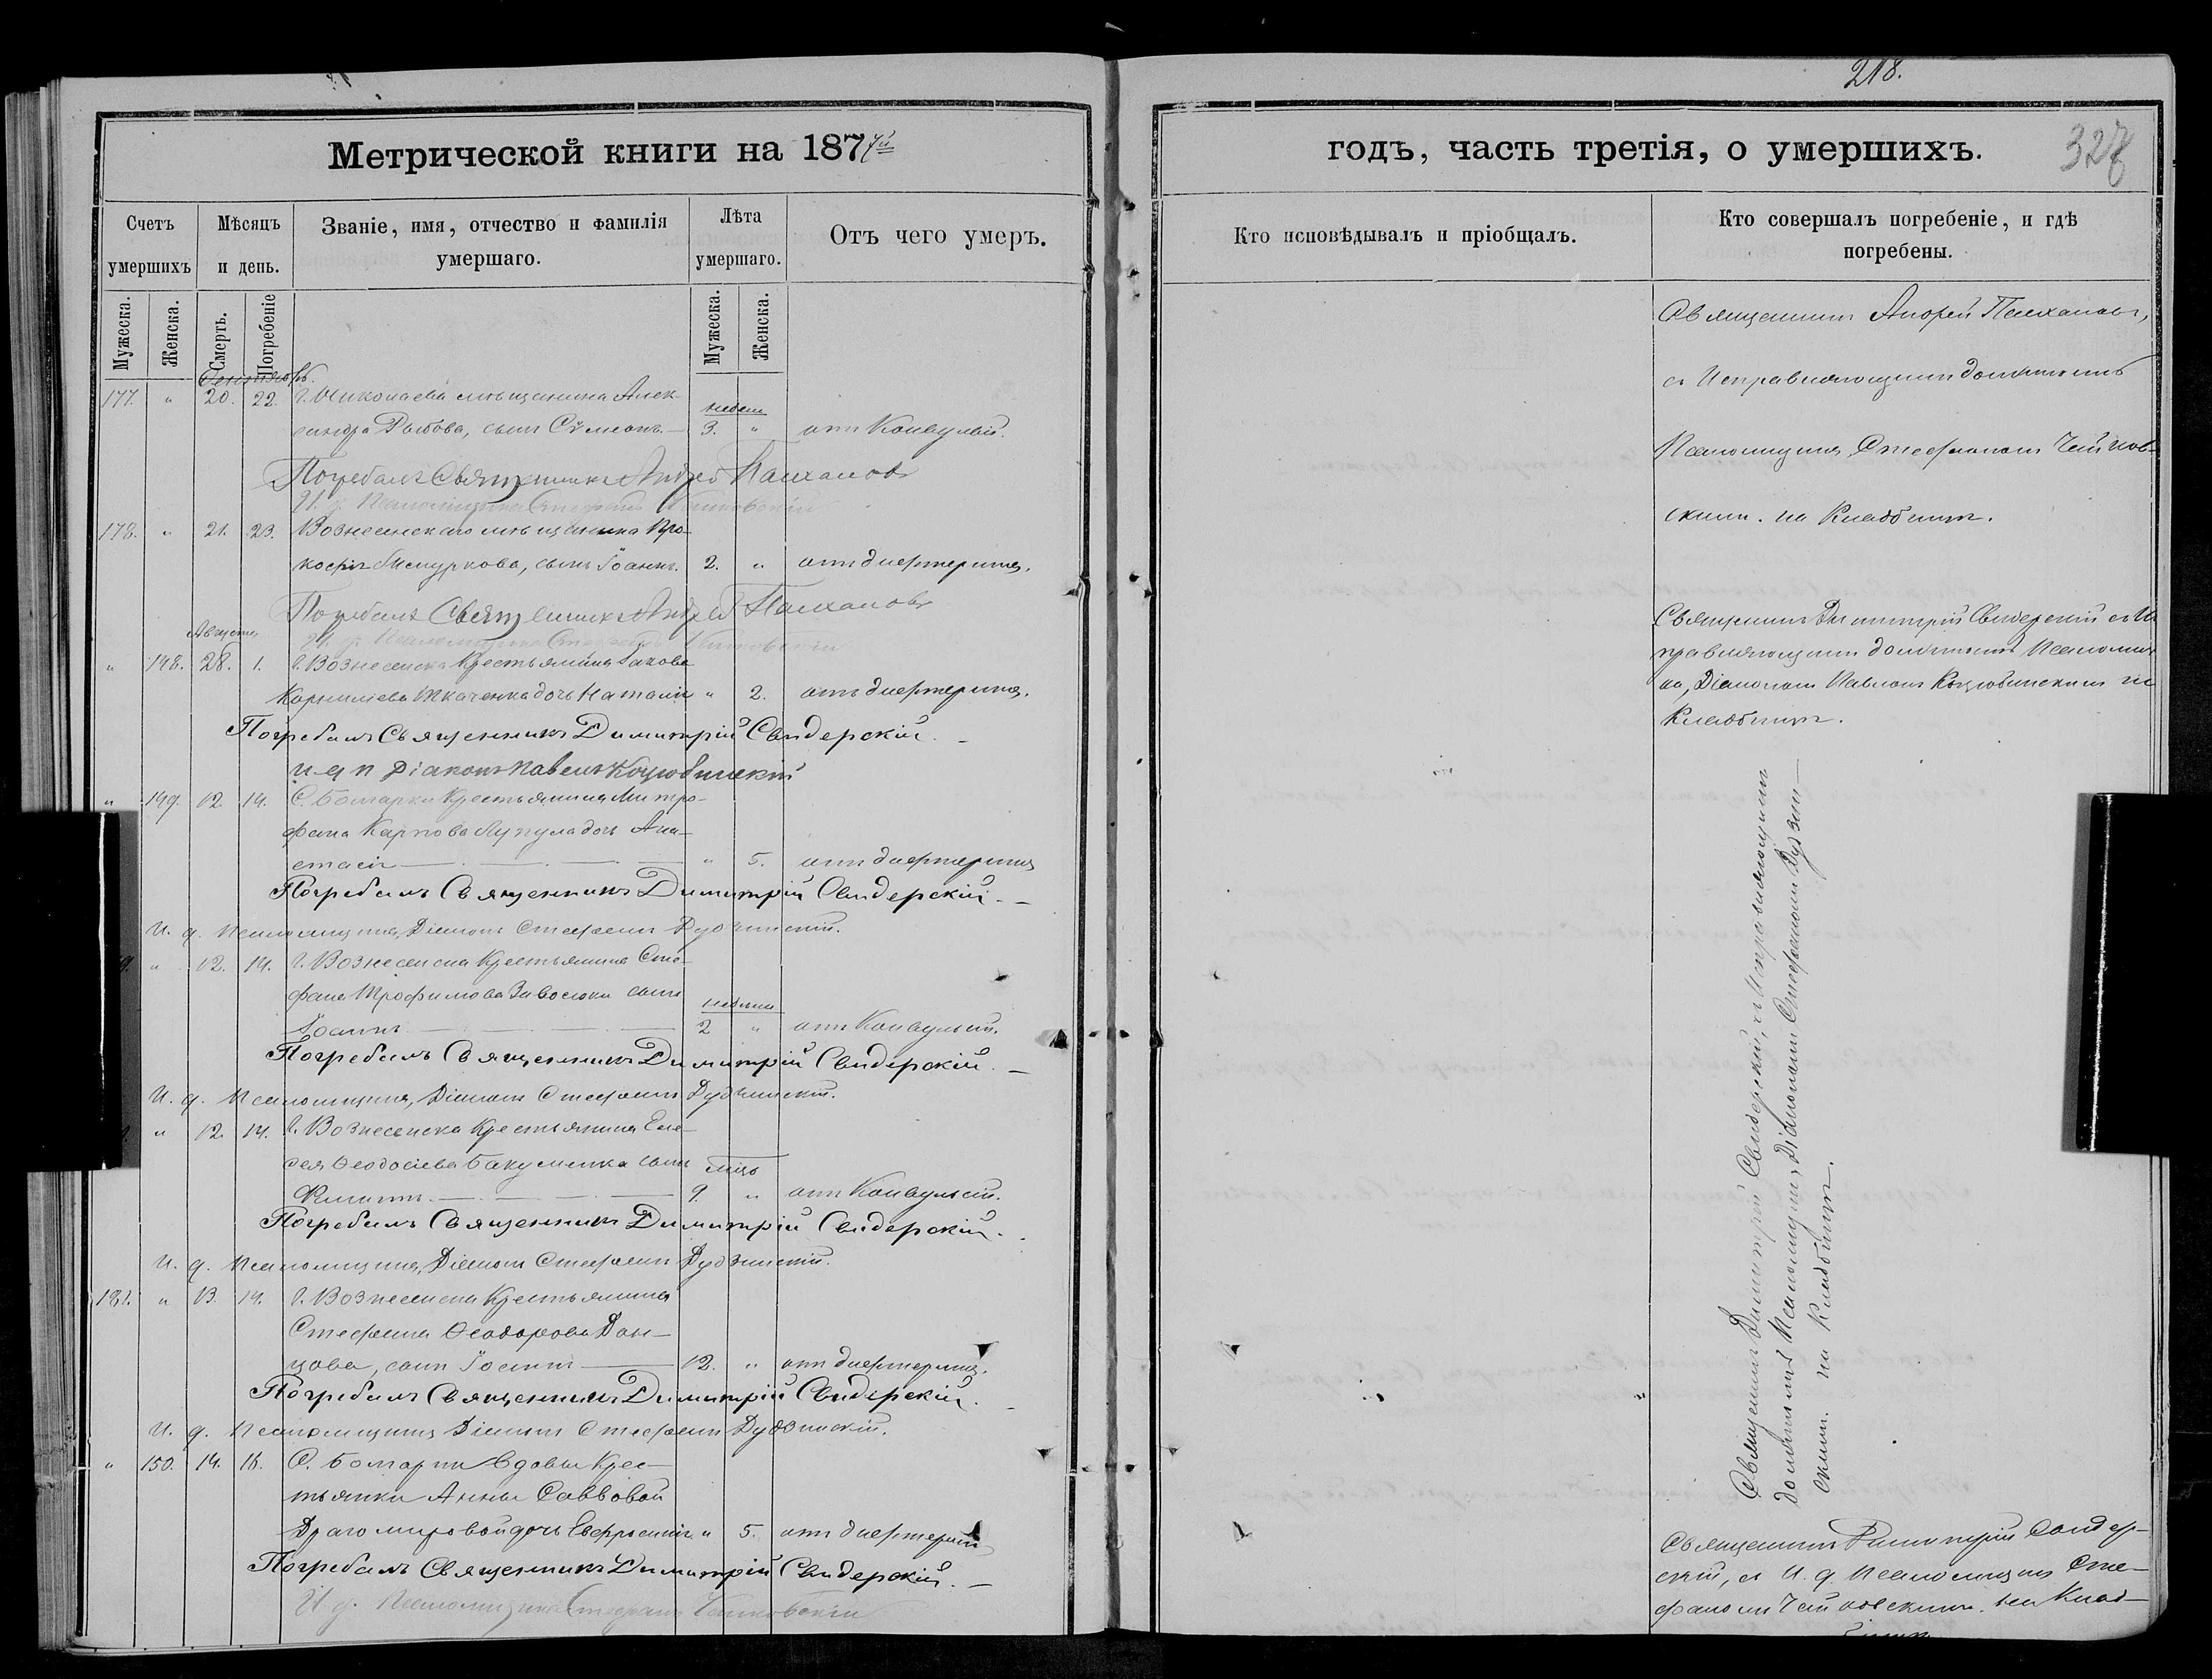 218.
327
Метрической книги на 1877й
годъ, часть третія, о умершихъ.
Счетъ умершихъ
Мѣсяцъ и день.
Званіе, имя, отчество и фамилія умершаго.
Лѣта умершаго.
Отъ чего умеръ.
Кто исповѣдывалъ и пріобщалъ.
Кто совершалъ погребеніе, и гдѣ погребены.
Мужеска. Женска. Смерть. Погребеніе Мужеска. Женска.
Сентябрь.
177. " 20. 22. Г. Николаева мѣщанина Алек-
сандра Рыбова, сынъ Сѵмеонъ. 3. " отъ Конвульсій.
Погребалъ Священникъ Андрей
И. д. Псаломщика Стефанъ
178. " 21. 23. Вознесенскаго мѣщанина Про-
кофія сынъ Іоаннъ. 2. " отъ дифтерита.
Погребалъ Священникъ Андрей
И. д. Псаломщика Стефанъ
Августа
" 148. 28. 1. г. Вознесенска Крестьянина Іакова
Корниліева Ткаченка дочь Наталія " 2. отъ дифтерита.
Погребалъ Священникъ Димитрій Свидерскій.
и д п Діаконъ Павелъ Коцюбинскій
" 149. 12. 14. С. Болгарки Крестьянина Митро-
фана Карпова Лупула дочь Ана-
стасія " 5. отъ дифтерита
Погребалъ Священникъ Димитрій Свидерскій.
И. д. Псаломщика, Діаконъ Стефанъ Дудзинскій.
" 12. 14. г. Вознесенска Крестьянина Сте-
фана Трофимова сынъ
недѣли
Іоаннъ 2 " отъ Конвульсій.
Погребалъ Священникъ Димитрій Свидерскій.
И. д. Псаломщика, Діаконъ Стефанъ Дудзинскій.
" 12. 14. г. Вознесенска Крестьянина Ели-
сея Ѳеодосіева Бакуменка сынъ
мѣс.
Филиппъ. 9. " отъ Конвульсій.
Погребалъ Священникъ Димитрій Свидерскій.
И. д. Псаломщика, Діаконъ Стефанъ Дудзинскій.
181. " 13. 14. г. Вознесенска Крестьянина
Стефана Ѳеодорова Дон-
цова, сынъ Іосифъ 12. " отъ дифтерита.
Погребалъ Священникъ Димитрій Свидерскій.
И. д. Псаломщика Діаконъ Стефанъ Дудзинскій.
" 150. 14. 16. С. Болгарки вдовы Крес-
тьянки Анны Саввовой
Драгомировой дочь Евфросинія " 5. отъ дифтерита
Погребалъ Священникъ Димитрій Свидерскій.
И д. Псаломщика Стефанъ
Священникъ Андрей
съ Исправляющимъ должность
Псаломщика Стефаномъ Чайков-
скимъ. на Кладбищѣ.
Священникъ Димитрій Свидерскій съ Ис
правляющимъ должность Псаломщи
ка, Діаконом Павломъ Коцюбинскимъ на
Кладбищѣ.
Священникъ Димитрій Свидерскій, съ Исправляющимъ
должность Псаломщика, Діакономъ Стефаномъ Дудзин-
скимъ. на Кладбищѣ.
Священникъ Димитрій Свидер-
скій, съ И. д. Псаломщика Сте-
фаномъ Чайковскимъ. на Клад-
бищѣ.